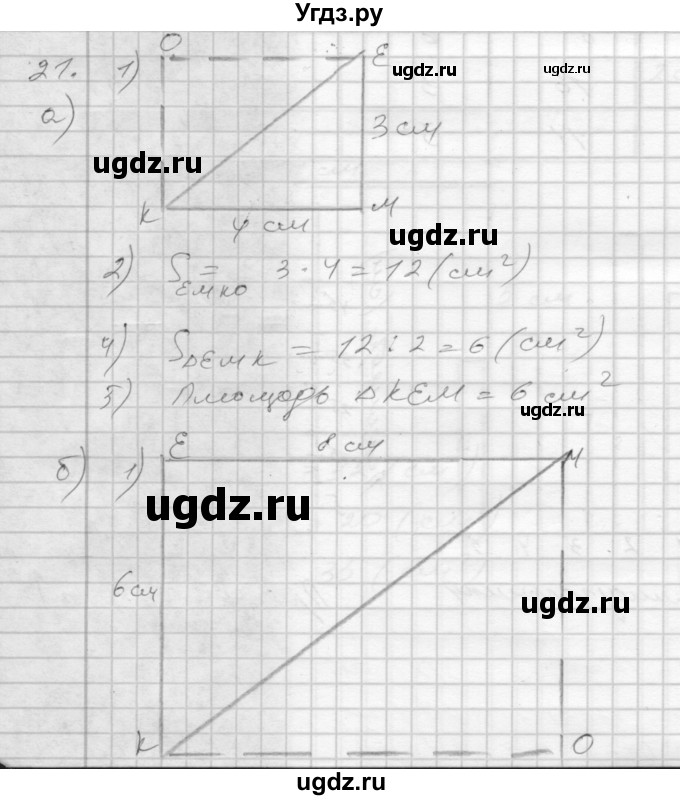 Угдз.ру
О
Е
21. 1)
ugdz.ru
ugdz.ru
а)
3 см
ugdz.ru
К
М
4 см
ugdz.ru
2) S ЕМКО = 3 · 4 = 12 (см²)
4) S ΔЕМК = 12 : 2 = 6 (см²)
5) Площадь ΔКЕМ = 6 см²
ugdz.ru
Е
8 см
М
б) 1)
ugdz.ru
6 см
ugdz.ru
К
О
ugdz.ru